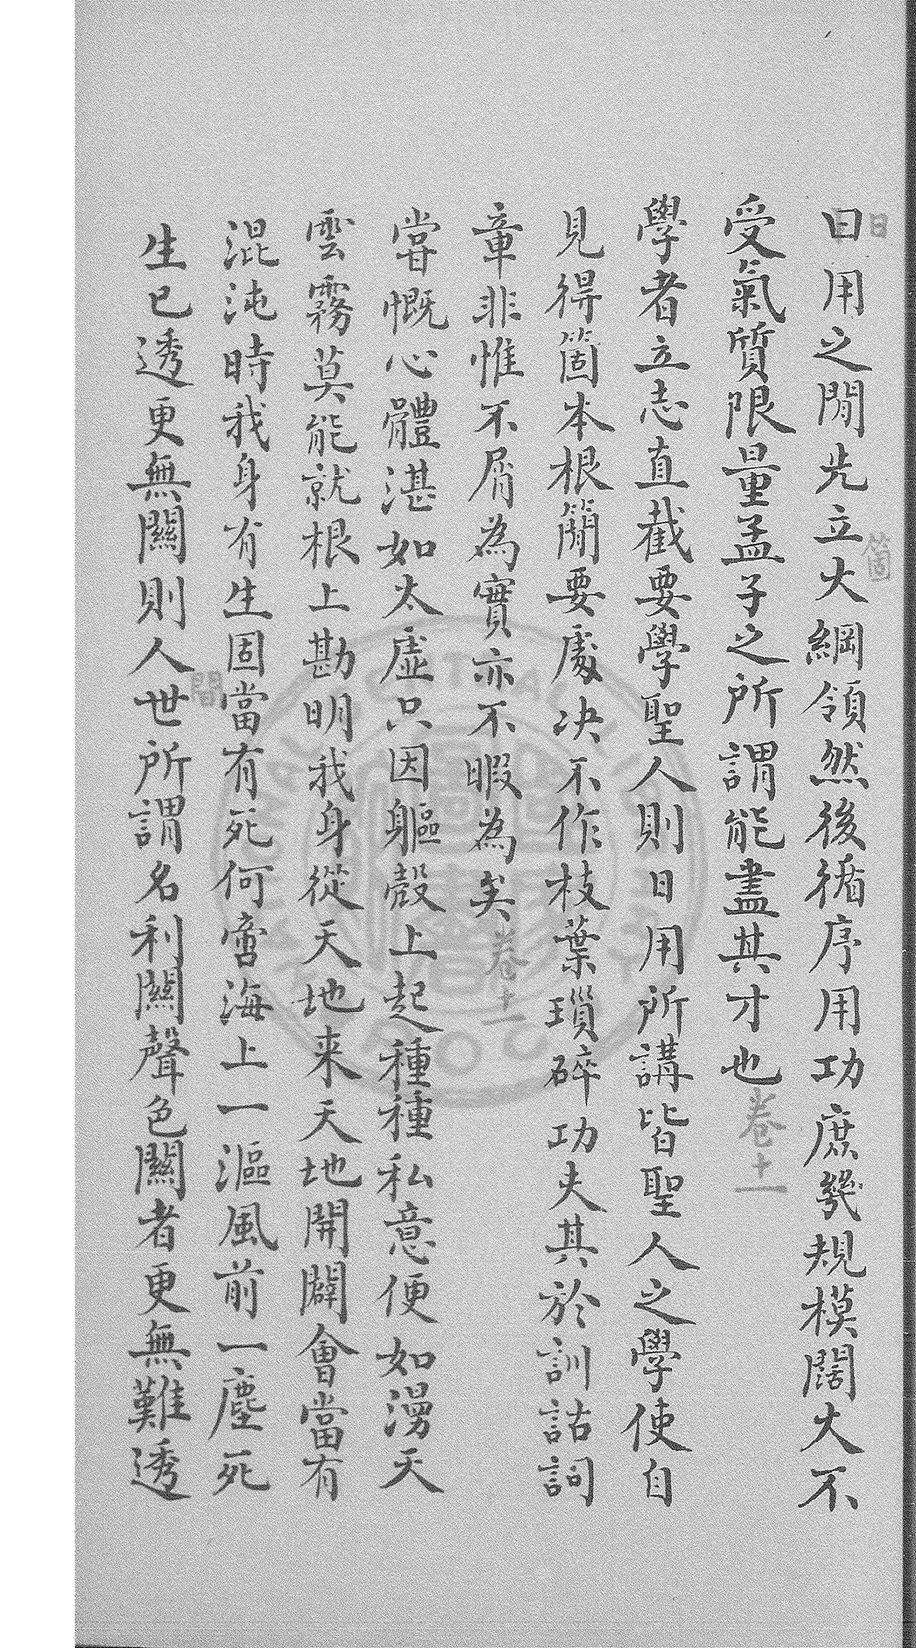 日用之間先立大綱領然後循序用功庶幾規模闊大不
受氣質限量孟子之所謂能盡其才也卷十一
學者立志直截要學聖人則日用所講皆聖人之學使自
見得箇本根簡要處决不作枝葉瑣碎功夫其於訓詁詞
章非惟不屑為實亦不暇為矣卷十一
嘗慨心體湛如太虛只因軀殼上起種種私意便如漫天
雲霧莫能就根上勘明我身從天地来天地開闢會當有
混沌時我身有生固當有死何啻海上一漚風前一塵死
生已透更無關則人世所謂名利關聲色關者更無難透
日
箇
間